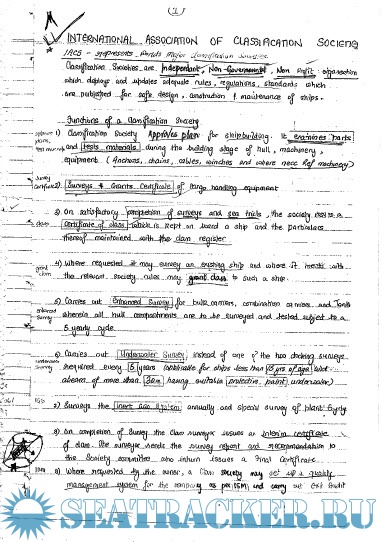 (1)
INTERNATIONAL ASSOCIATION OF CLASSIFICATION SOCIETIES
IACS - represents World's Major Classification Societies
Classification Societies are Independent, Non-Governmental, Non Profit organisation
which deploys and updates adequate rules, regulations, standards which
are published for safe design, construction & maintenance of ships.
Functions of a Classification Society
1) Classification Society Approves plan for shipbuilding. It examines parts
and tests materials during the building stage of hull, machinery,
equipment (Anchors, chains, cables, winches and where necc Ref machinery)
Survey
Certificate
2) Surveys & Grants Certificate of cargo handling equipment
3) On satisfactory completion of surveys and sea trials, the society issues a
class
certificate of class which is kept on board a ship and the particulars
thereof maintained with the class register
4) Where requested it may survey an existing ship and where it meets with
grant
class
the relevant society rules may grant class to such a ship.
5) Carries out Enhanced Survey for bulk carriers, combination carriers, and Tanks
Enhanced
Survey
wherein all hull compartments are to be surveyed and tested subject to a
5 yearly cycle.
6) Carries out Underwater Survey instead of one of the two docking surveys
underwater
Survey
required every 5 years (applicable for ships less than 15 yrs of age and
abeam of more than 30m having suitable protective paint underwater)
IGS
7) Surveys the Inert Gas System annually and special survey of plant 5 yrly
8) On completion of survey the class surveyor issues an interim certificate
of class. The surveyor sends the survey report and recommendation to
the Society committee who inturn issues a Final Certificate.
9) Where requested by the owner, a Class society may set up a quality
management system for the company as per ISM and carry out ext Audit
SEATRACKER.RU